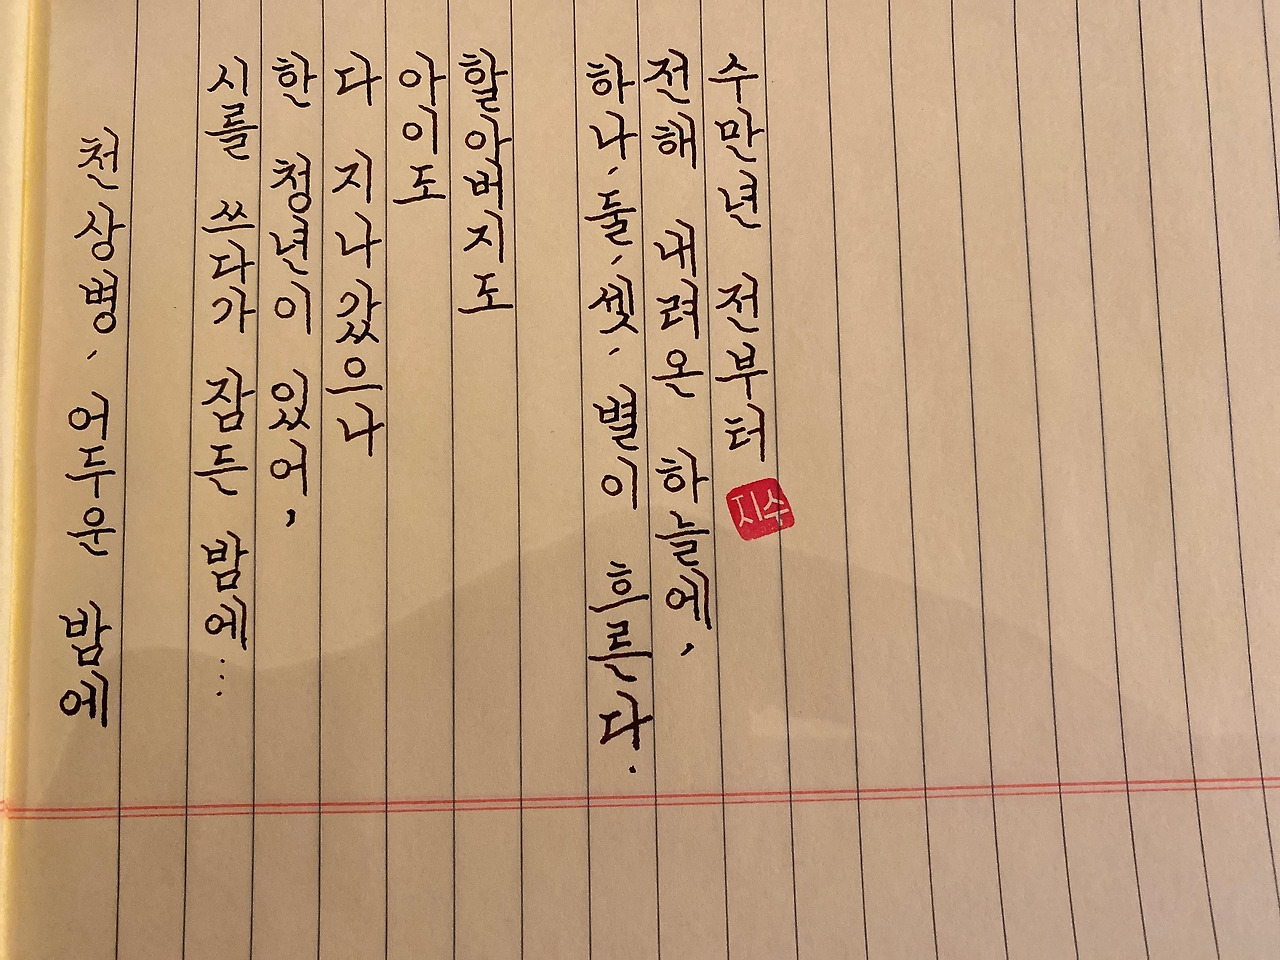 수만년 전부터
전해 내려온 하늘에,
하나, 둘, 셋, 별이 흐른다.
할아버지도
아이도
다 지나갔으나
한 청년이 있어,
시를 쓰다가 잠든 밤에…
천상병, 어두운 밤에
지수